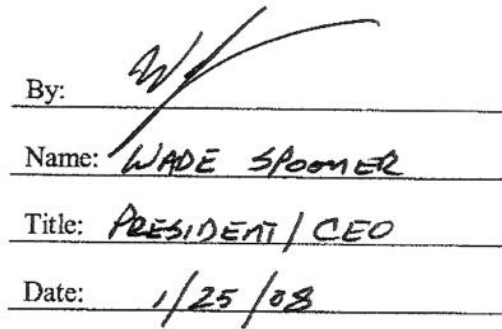 By:
Name: WADE SPOONER
Title: PRESIDENT/CEO
Date: 1/25/08